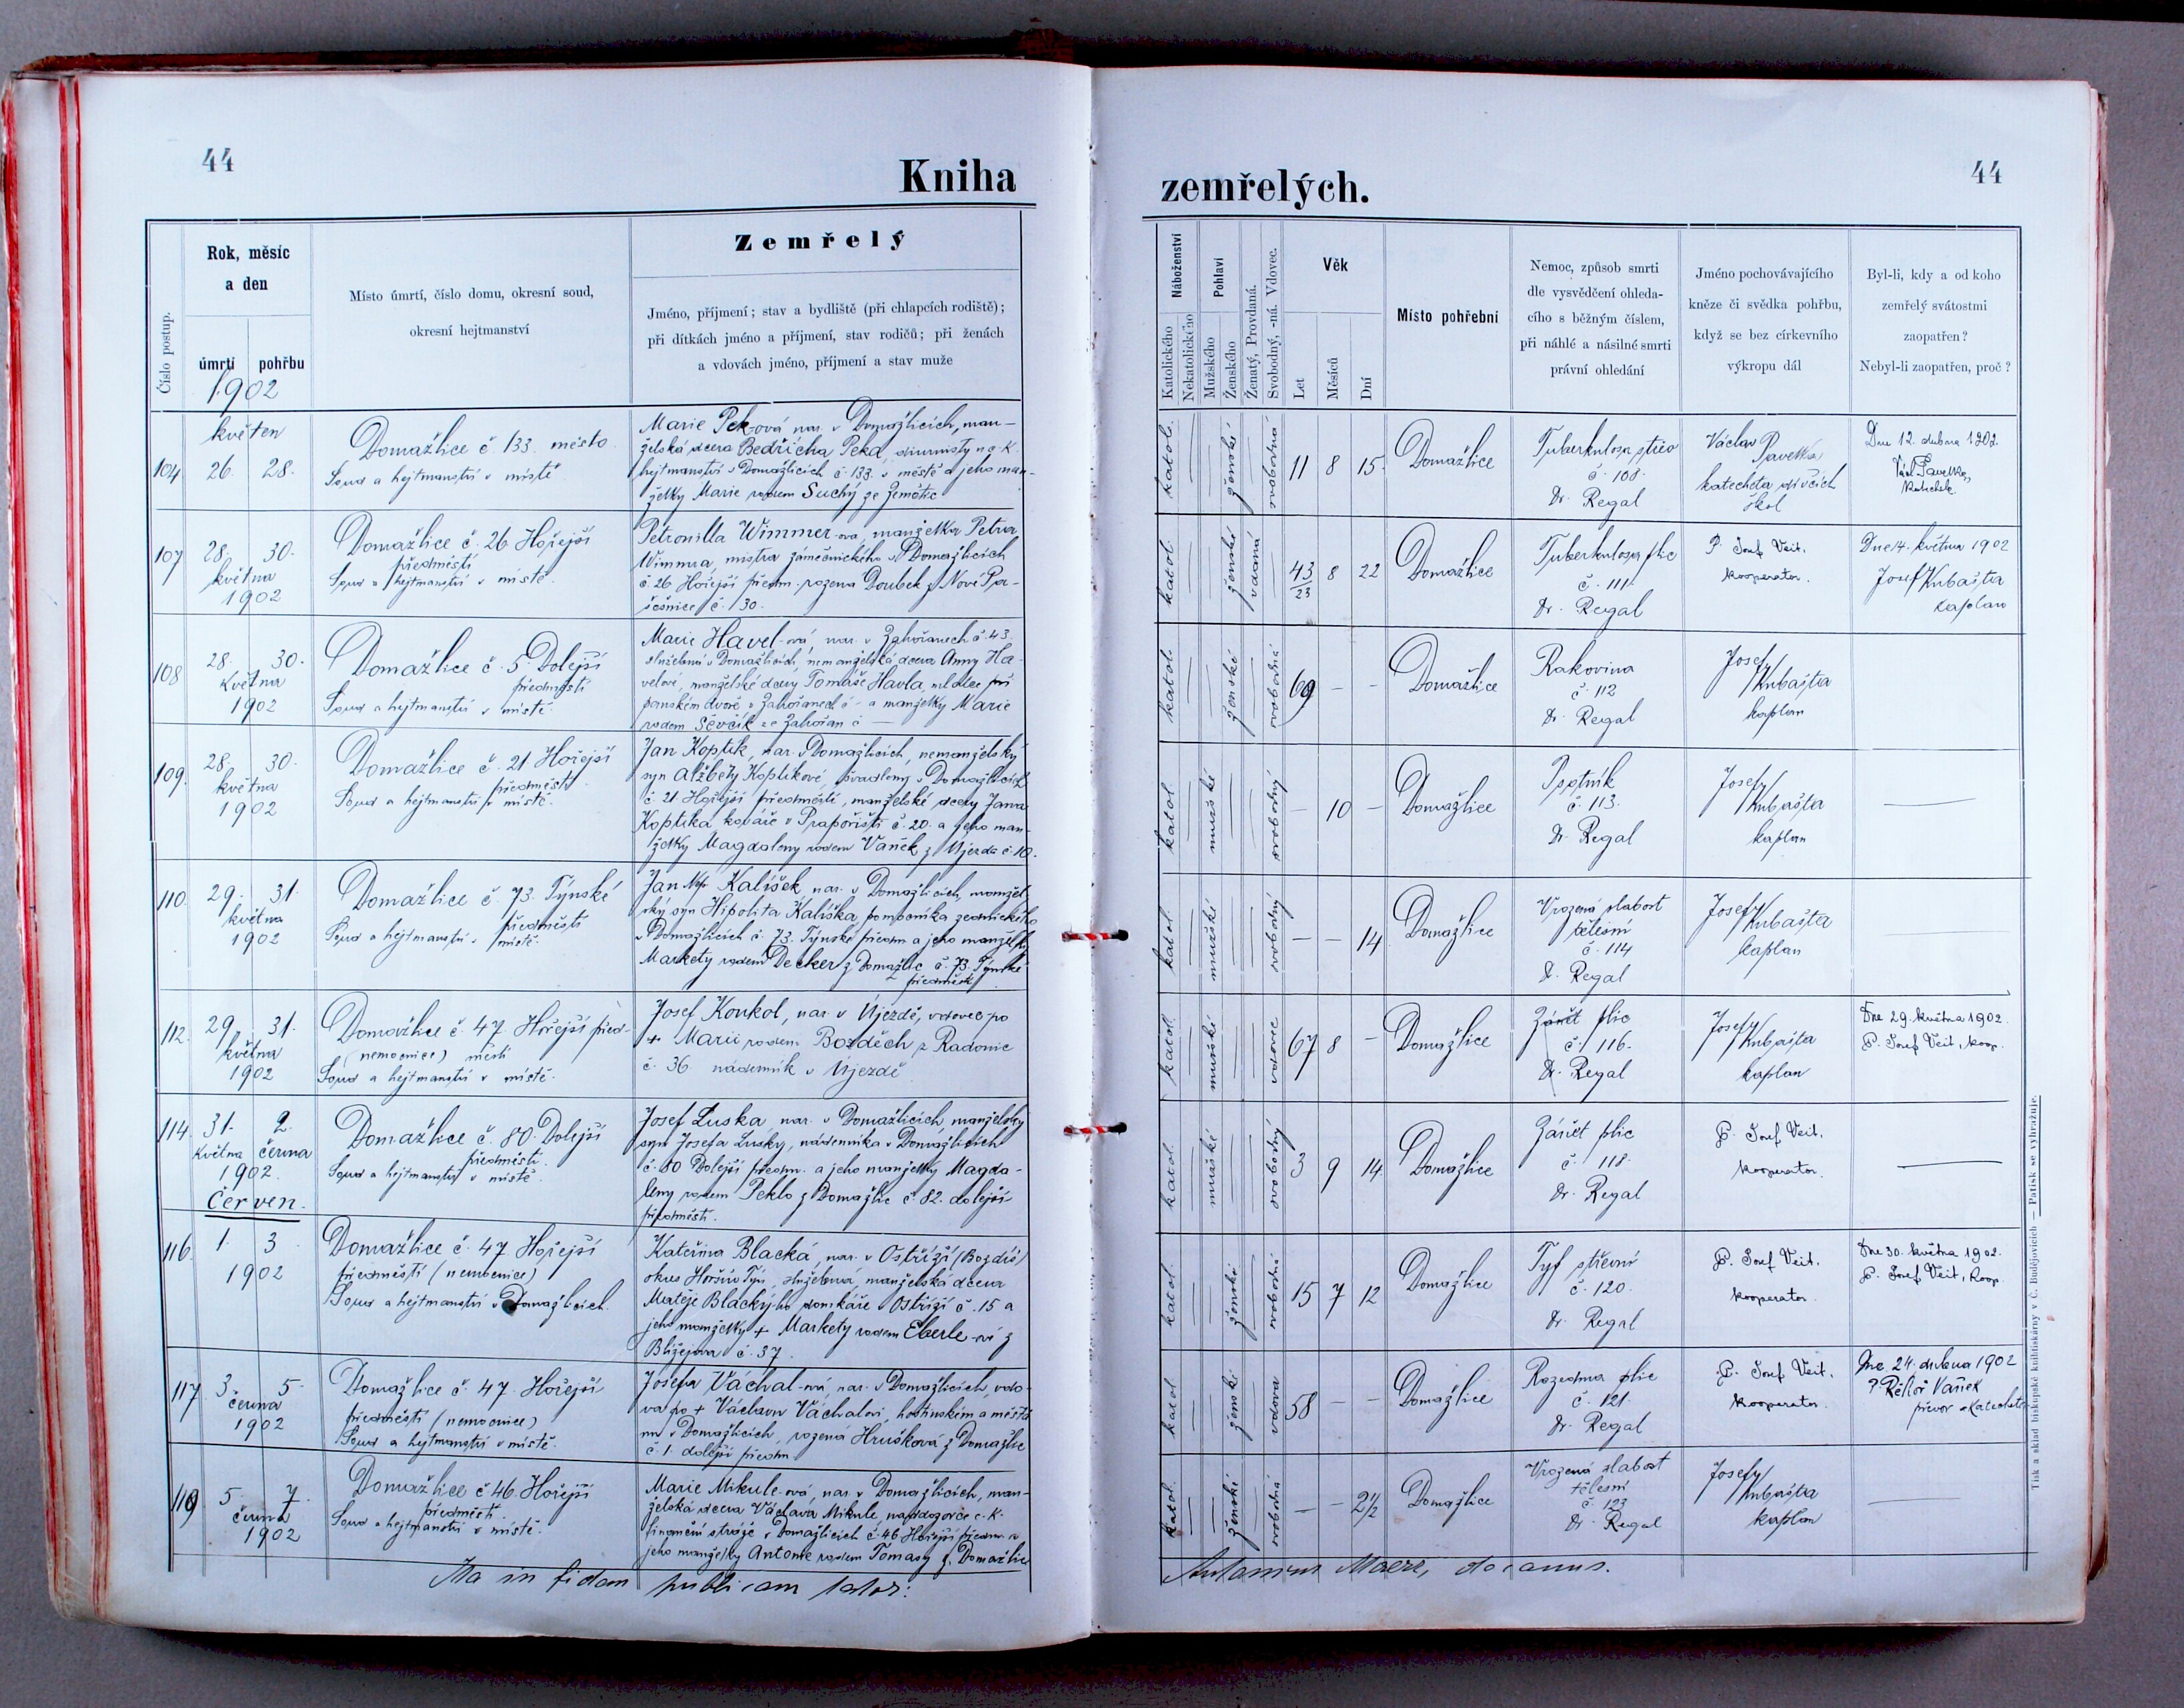 44
Kniha
Číslo postup.
Rok, měsíc
a den
úmrtí
pohřbu
1902
Místo úmrtí, číslo domu, okresní soud,
okresní hejtmanství
Zemřelý
Jméno, příjmení; stav a bydliště (při chlapcích rodiště);
při dítkách jméno a příjmení, stav rodičů; při ženách
a vdovách jméno, příjmení a stav muže
květen
104
26.
28.
Domažlice č. 133. město
Soud a hejtmanství v místě
Marie Peková nar. v Domažlicích, man-
želská dcera Bedřicha Peka, diurnisty
hejtmanství v Domažlicích č. 133. v městě a jeho man-
želky Marie rodem Suchý ze
107
28.
30.
května
1902
Domažlice č. 26 Hořejší
předměstí
Soud a hejtmanství v místě.
Petronilla Wimmer-ová, manželka Petra
Wimmra, mistra zámečnického v Domažlicích
č. 26 Hořejší předm. rozena Doubek z Nové Pa-
č. 30.
108
28.
30.
května
1902
Domažlice č. 5. Dolejší
předměstí
Soud a hejtmanství v místě.
Marie Havel-ová, nar. v Zahořanech č. 43.
služebná v Domažlicích, nemanželská dcera Anny Ha-
velové, manželské dcery Tomáše Havla, mlatec při
panském dvoře v Zahořanech č - a manželky Marie
rodem Ševčík ze Zahořan č —
109.
28.
30.
května
1902
Domažlice č. 21 Hořejší
předměstí
Soud a hejtmanství v místě.
Jan Koptik, nar. v Domažlicích, nemanželský
syn Alžběty Koptikové, švadleny v Domažlicích
č. 21 Hořejší předměstí, manželské dcery Jana
Koptika kováře v Prapořišti č. 20. a jeho man-
želky Magdaleny rodem Vaněk z Újezda č. 10.
110.
29.
31.
května
1902
Domažlice č. 73. Týnské
předměstí
Soud a hejtmanství v místě.
Jan Nep. Kališek, nar. v Domažlicích, manžel-
ský syn Hipolita Kališka, pomocníka zednického
v Domažlicích č. 73. Týnské předm a jeho manželky
Markety rodem Decker z Domažlic č. 73. Týnské
předměstí
112.
29.
31.
května
1902
Domažlice č. 47. Hořejší před-
(nemocnice) městí
Soud a hejtmanství v místě.
Josef Konkol, nar. v Újezdě, vdovec po
+ Marii rodem Bozděch z Radonic
č. 36 nádenník v Újezdě
114.
31.
2.
Května
června
1902.
Domažlice č. 80. Dolejší
předměstí.
Soud a hejtmanství v místě.
Josef Luska, nar. v Domažlicích, manželský
syn Josefa Lusky, nádenníka v Domažlicích
č. 80 Dolejší předm. a jeho manželky Magda-
leny rodem Peklo z Domažlic č. 82. dolejší
předměstí.
Červen.
116.
1.
3
1902
Domažlice č. 47 Hořejší
předměstí (nemocnice)
Soud a hejtmanství v Domažlicích.
Kateřina Blacká, nar. v Ostříži (Bozdíš)
okres Horšův Týn, služebná, manželská dcera
Matěje Blackýho domkáře Ostříži č. 15 a
jeho manželky + Markety rodem Eberle-ví z
Blížejova č. 37.
117.
3.
5.
června
1902
Domažlice č. 47. Hořejší
předměstí (nemocnice)
Soud a hejtmanství v místě.
Josefa Váchal-ová, nar. v Domažlicích, vdo-
va po + Václavu Váchalovi, hostinském a měšťa
nu v Domažlicích, rozena Hrušková z Domažlic
č. 1. dolejší předm
119
5.
7.
června
1902
Domažlice č 46. Hořejší
předměstí.
Soud a hejtmanství v místě.
Marie Mikule-ová, nar. v Domažlicích, man-
želská dcera Václava Mikule, naddozorce c.-k.
finanční stráže v Domažlicích č. 46 Hořejší předm. a
jeho manželky Antonie rodem Tomasy z Domažlic
Ita in fidem publicam testor:
44
zemřelých.
Náboženství
Katolického
Nekatolického
Pohlaví
Mužského
Ženského
Ženatý, Provdaná.
Svobodný, -ná. Vdovec.
Věk
Let
Měsíců
Dní
Místo pohřební
Nemoc, způsob smrti
dle vysvědčení ohleda-
cího s běžným číslem,
při náhlé a násilné smrti
právní ohledání
Jméno pochovávajícího
kněze či svědka pohřbu,
když se bez církevního
výkropu dál
Byl-li, kdy a od koho
zemřelý svátostmi
zaopatřen?
Nebyl-li zaopatřen, proč?
katol.
ženské
svobodná
11
8
15
Domažlice
Tuberkulosa střev
č. 108
Dr. Regal
Václav Pavelka
katecheta dívčích
škol
Dne 12. dubna 1902.
Václ. Pavelka,
katol.
ženské
vdaná
43
23
8
22
Domažlice
Tuberkulosa plic
č. 111.
Dr. Regal
P. Josef Veit.
kooperator.
Dne 14. května 1902
Josef Kubašta
kaplan
katol.
ženské
svobodná
69
-
-
Domažlice
Rakovina
č. 112
Dr. Regal
Josef
Kubašta
kaplan
katol
mužské
svobodný
-
10
-
Domažlice
Psotník
č. 113.
Dr. Regal
Josef
Kubašta
kaplan
katol.
mužské
svobodný
-
-
14
Domažlice
Vrozená slabost
tělesní
č. 114
Dr. Regal
Josef
Kubašta
kaplan
katol.
mužské
vdovec
67
8
-
Domažlice
Zánět plic
č. 116.
Dr. Regal
Josef
Kubašta
kaplan
Dne 29. května 1902.
P. Josef Veit, koop.
katol.
mužské
svobodný
3
9
14
Domažlice
Zánět plic
č. 118.
Dr. Regal
P. Josef Veit.
kooperator.
katol.
ženské
svobodná
15
7
12
Domažlice
Tyf střevní
č. 120.
Dr. Regal
P. Josef Veit.
kooperator.
Dne 30. května 1902.
P. Josef Veit, koop.
katol
ženské
vdova
58
-
-
Domažlice
Rozedma plic
č. 121.
Dr. Regal
P. Josef Veit.
kooperator.
Dne 24. dubna 1902
P. Vaněk
převor
katol.
ženské
svobodná
-
-
2 1/2
Domažlice
Vrozená slabost
tělesní
č. 123
Dr. Regal
Josef
Kubašta
kaplan
Antonius Maerz, decanus.
Tisk a sklad biskupské knihtiskárny v Č. Budějovicích — Patisk se vyhražuje.